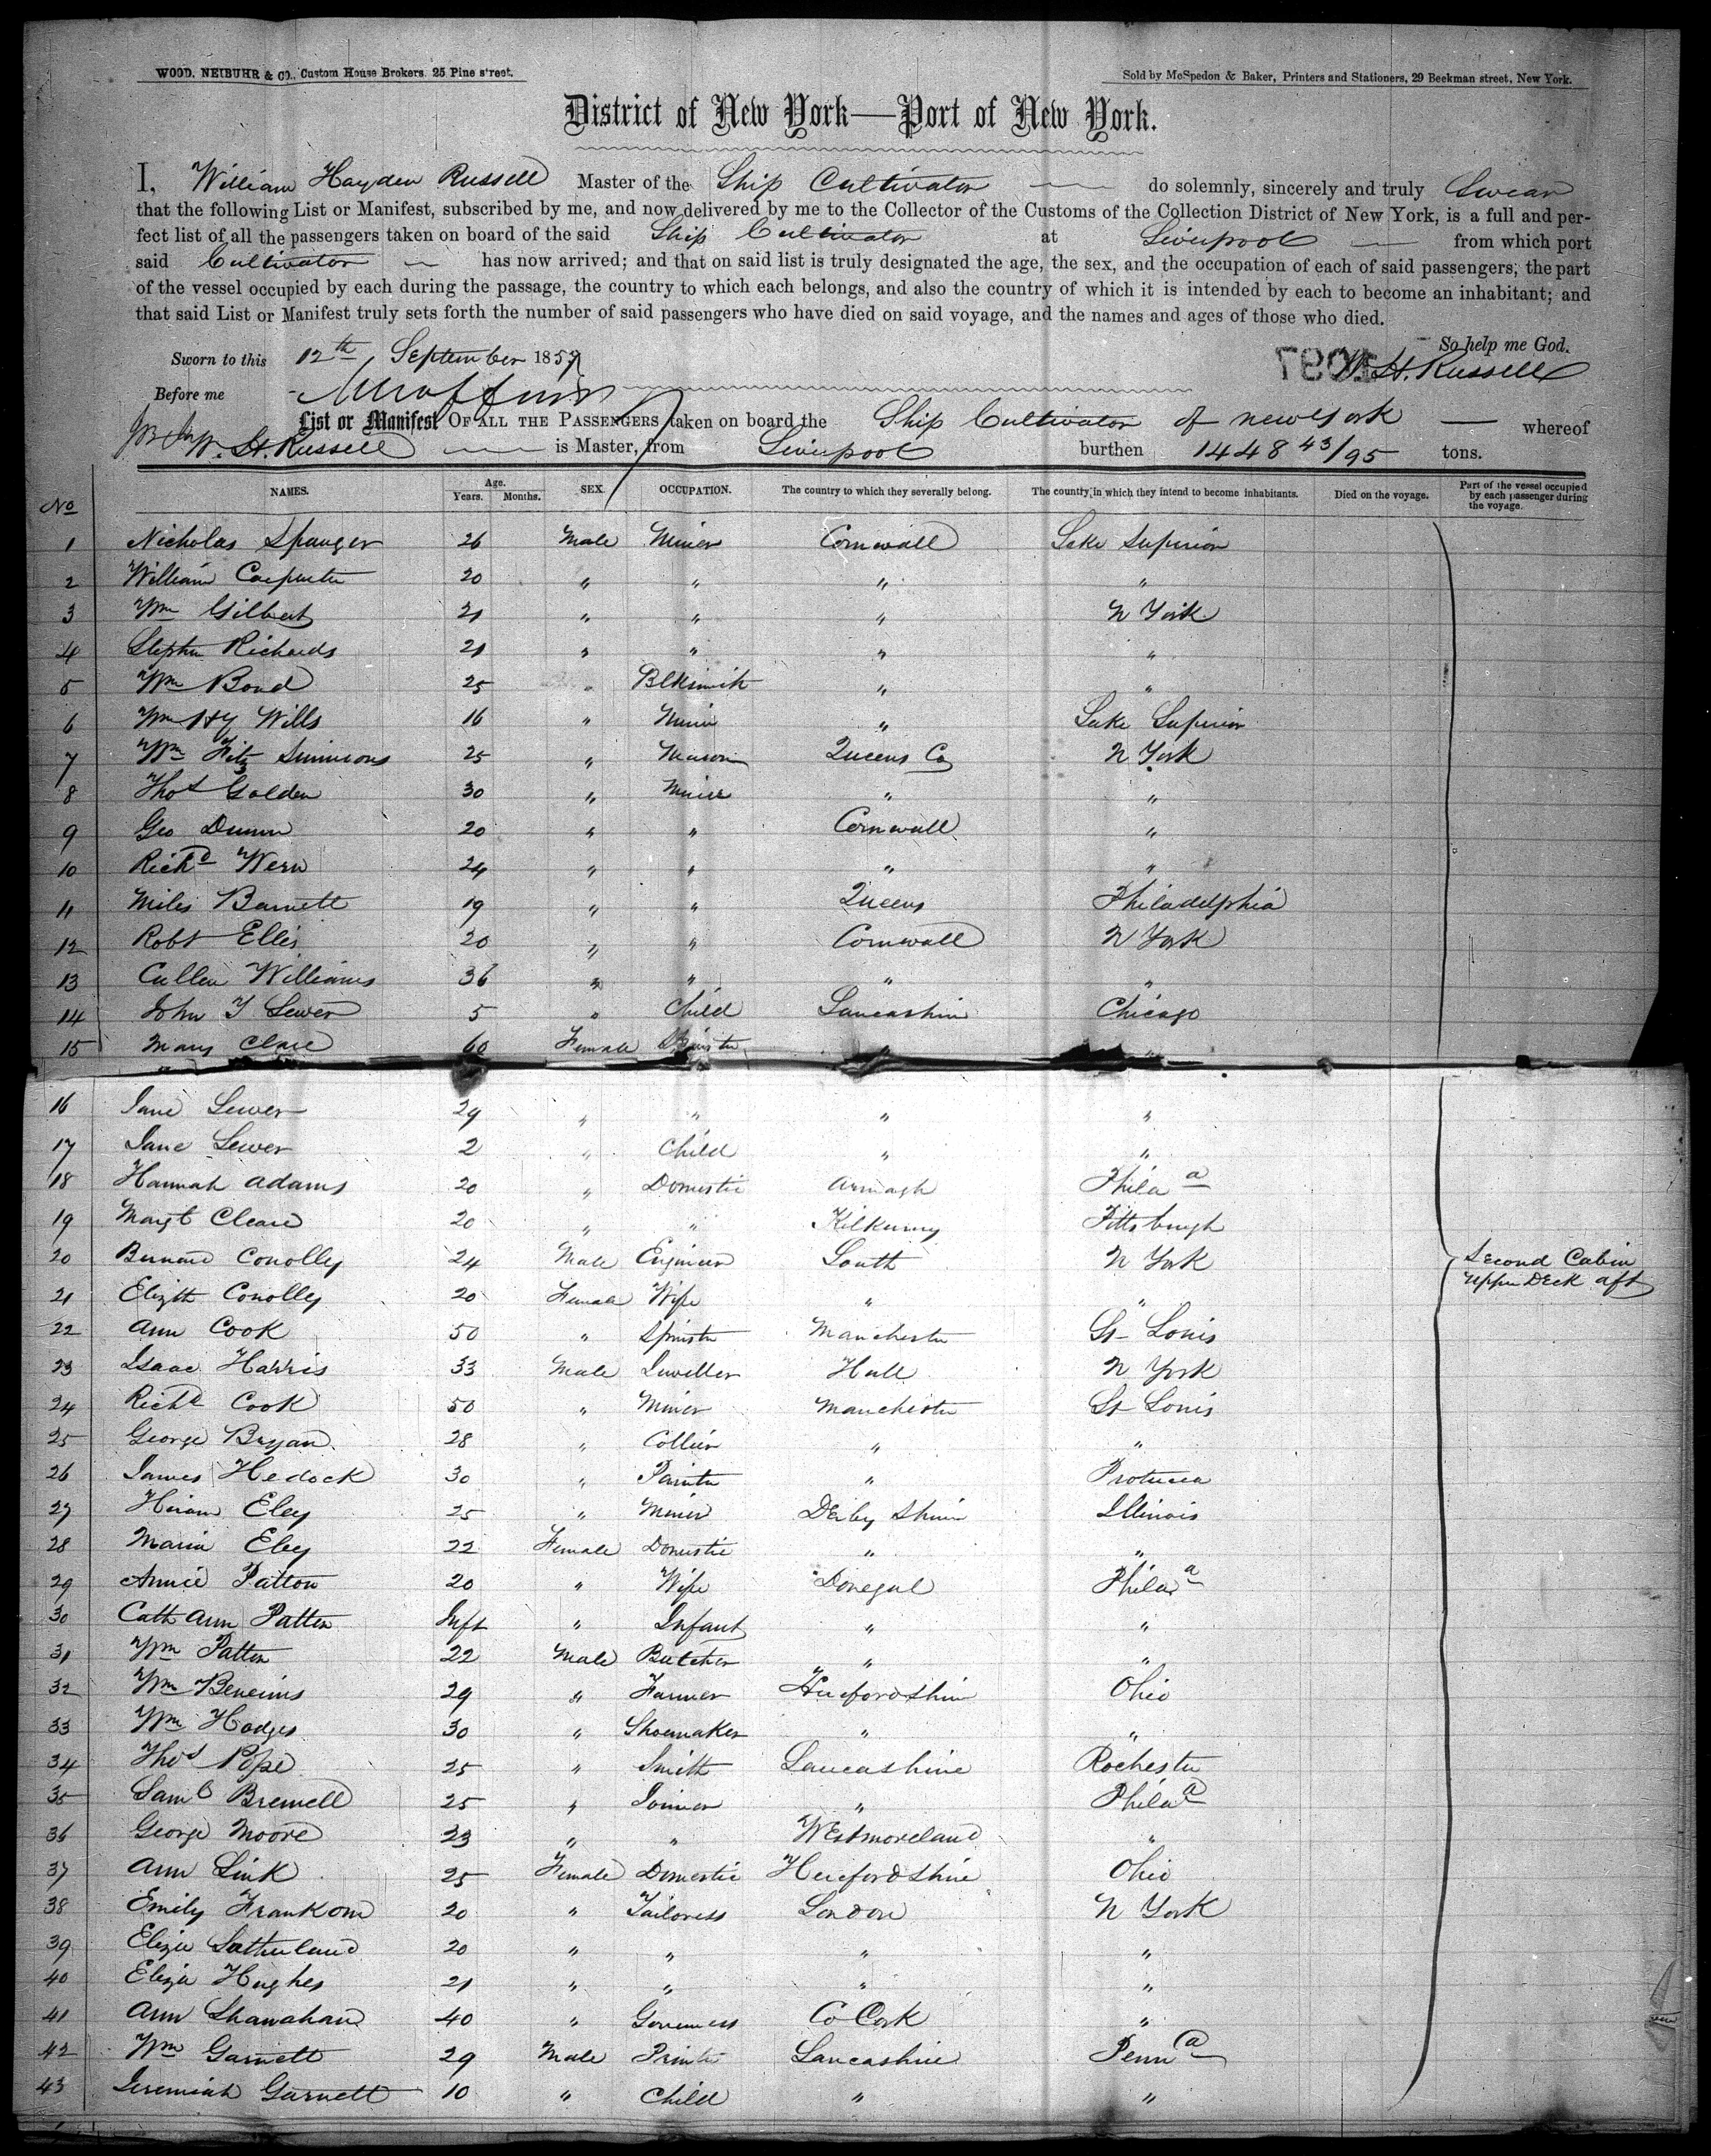 WOOD, NEIBUHR & CO., Custom House Brokers. 25 Pine street.
Sold by McSpedon & Baker, Printers and Stationers, 29 Beekman street, New York.
District of New York—Port of New York.
I, William Hayden Russell Master of the Ship Cultivator do solemnly, sincerely and truly Swear
that the following List or Manifest, subscribed by me, and now delivered by me to the Collector of the Customs of the Collection District of New York, is a full and per-
fect list of all the passengers taken on board of the said Ship Cultivator at Liverpool from which port
said Cultivator has now arrived; and that on said list is truly designated the age, the sex, and the occupation of each of said passengers, the part
of the vessel occupied by each during the passage, the country to which each belongs, and also the country of which it is intended by each to become an inhabitant; and
that said List or Manifest truly sets forth the number of said passengers who have died on said voyage, and the names and ages of those who died.
So help me God.
Sworn to this 12th September 1857
W. H. Russell
Before me
List or Manifest OF ALL THE PASSENGERS taken on board the Ship Cultivator of new York whereof
W. H. Russell is Master, from Liverpool burthen 1448 43/95 tons.
No NAMES. Age. Years. Months. SEX. OCCUPATION. The country to which they severally belong. The country in which they intend to become inhabitants. Died on the voyage. Part of the vessel occupied by each passenger during the voyage.
1 Nicholas Spauger 26 Male Miner Cornwall Lake Superior
2 William Carpenter 20 " " " "
3 Wm Gilbert 21 " " " N York
4 Stephen Richards 21 " " " "
5 Wm Bond 25 " Blksmith " "
6 Wm Hy Wills 16 " Miner " Lake Superior
7 Wm Fitz Simmons 25 " Mason Queens Co N York
8 Thos Golden 30 " Miner " "
9 Geo Dunn 20 " " Cornwall "
10 Richd Wern 24 " " " "
11 Miles Barnett 19 " " Queens Philadelphia
12 Robt Ellis 20 " " Cornwall N York
13 Cullen Williams 36 " " " "
14 John T Lewer 5 " Child Lancashire Chicago
15 Mary Clare 60 Female Spinster " "
16 Jane Lewer 29 " " " "
17 Jane Lewer 2 " Child " "
18 Hannah Adams 20 " Domestic Armagh Phila a
19 Margt Cleare 20 " " Kilkenny Pittsburgh
20 Bernard Conolly 24 Male Engineer Louth N York Second Cabin
21 Elizth Conolly 20 Female Wife " " Upper Deck aft
22 Ann Cook 50 " Spinster Manchester St Louis
23 Isaac Harris 33 Male Jweller Hull N York
24 Richd Cook 50 " Miner Manchester St Louis
25 George Bryan 28 " Collier " "
26 James Hedock 30 " Painter "
27 Hiram Eley 25 " Miner Derby Shire Illinois
28 Maria Eley 22 Female Domestic " "
29 Annie Patton 20 " Wife Donegal Phila a
30 Cath Ann Patton Inft " Infant " "
31 Wm Patton 22 Male Butcher " "
32 Wm Beneims 29 " Farmer Herefordshire Ohio
33 Wm Hodges 30 " Shoemaker " "
34 Thos Pope 25 " Smith Lancashire Rochester
35 Saml Bremell 25 " Joiner " Phila a
36 George Moore 23 " " Westmoreland "
37 Ann Link 25 Female Domestic Herefordshire Ohio
38 Emily Frankom 20 " Tailoress London N York
39 Eliza Sutherland 20 " " " "
40 Eliza Hughes 21 " " " "
41 Ann Shanahan 40 " Governess Co Cork "
42 Wm Garnett 29 Male Printer Lancashire Penn a
43 Jeremiah Garnett 10 " Child " "